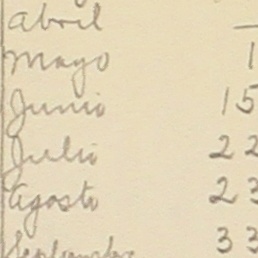 Abril —
Mayo 1
Junio 15
Julio 22
Agosto 23
Septiembre 33